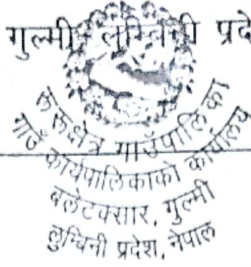 गुल्मी, लुम्बिनी प्रदे
रुरुक्षेत्र गाउँपालिका
गाउँ कार्यपालिकाको कार्यालय
वलेटक्सार, गुल्मी
लुम्बिनी प्रदेश, नेपाल